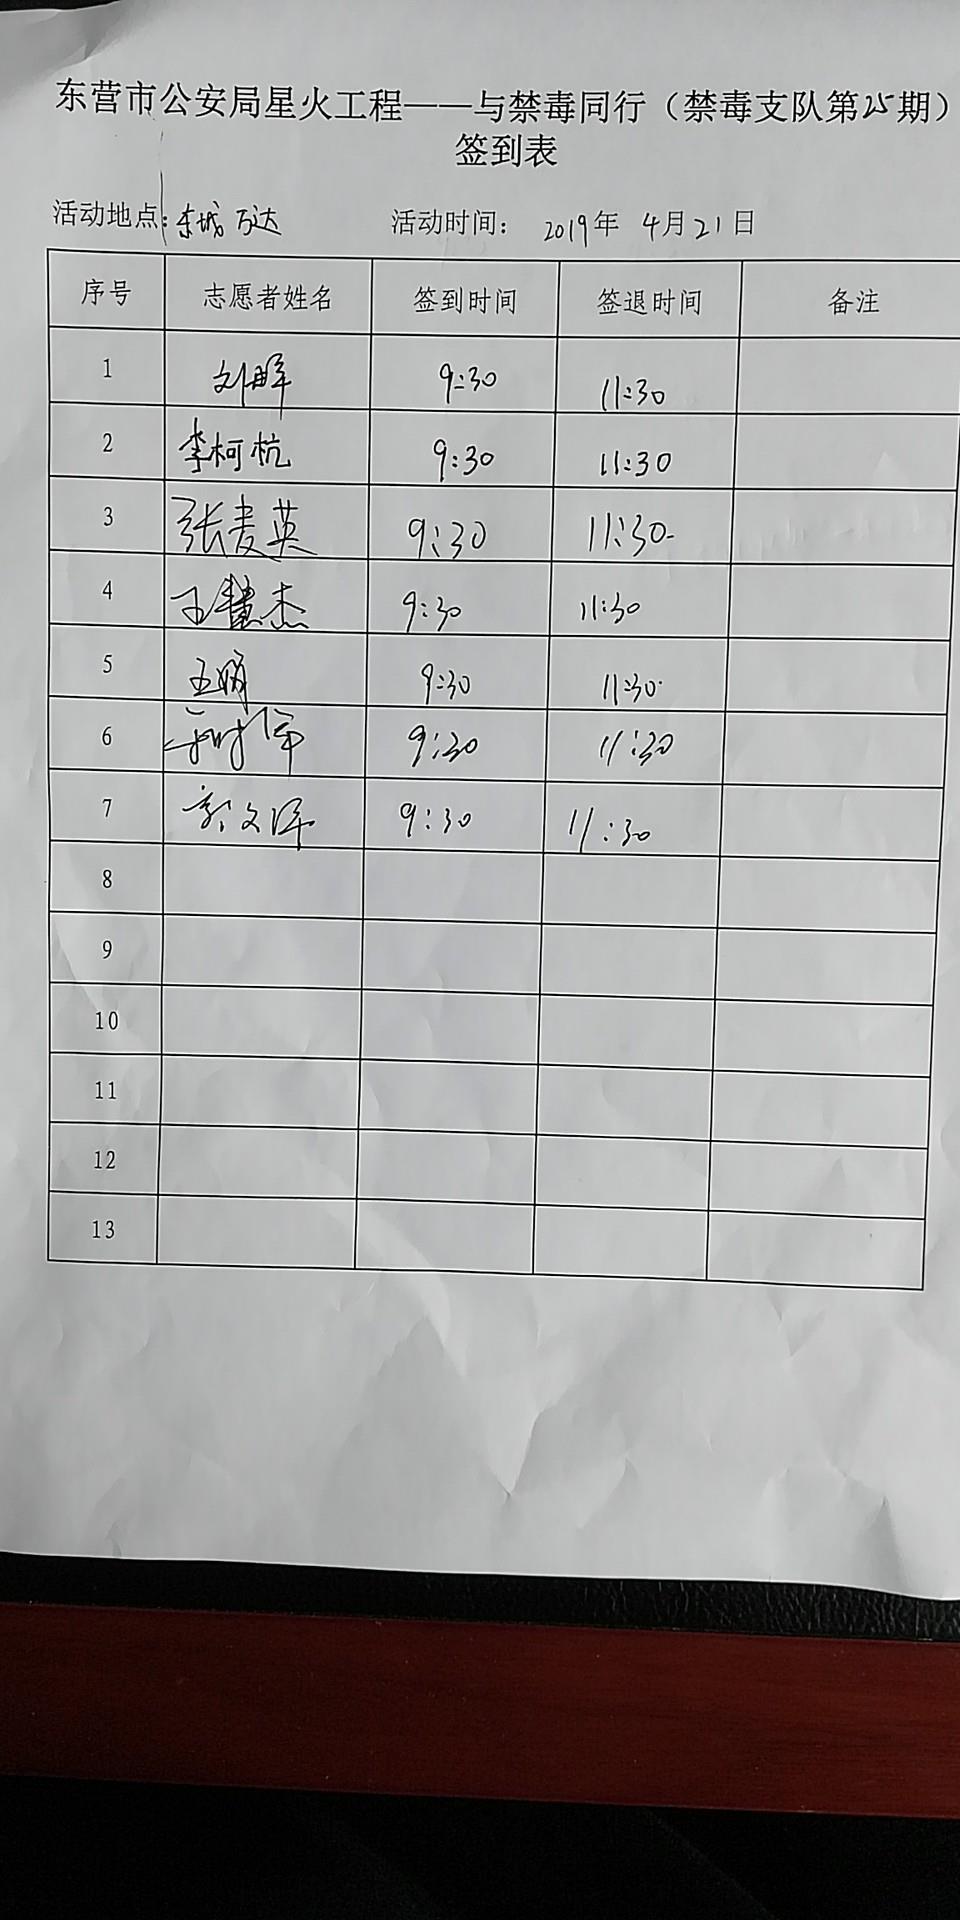 东营市公安局星火工程——与禁毒同行（禁毒支队第25期）
签到表
活动地点：东城万达 活动时间： 2019年 4月21日
序号 志愿者姓名 签到时间 签退时间 备注
1 9:30 11:30
2 李柯杭 9:30 11:30
3 张麦英 9:30 11:30
4 王慧杰 9:30 11:30
5 9:30 11:30
6 9:30 11:30
7 9:30 11:30
8
9
10
11
12
13